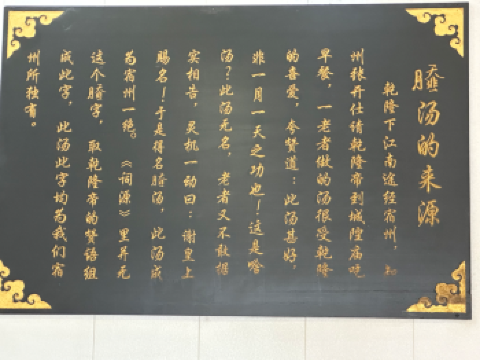 膪汤的来源
乾隆下江南途经宿州，知
州张开仕请乾隆帝到城隍庙吃
早餐，一老者做的汤很受乾隆
的喜爱，夸赞道：此汤甚好，
非一月一天之功也！这是啥
汤？此汤无名，老者又不敢据
实相告，灵机一动曰：谢皇上
赐名！于是得名膪汤，此汤成
为宿州一绝。《词源》里并无
这个膪字，取乾隆帝的赞语组
成此字，此汤此字均为我们宿
州所独有。